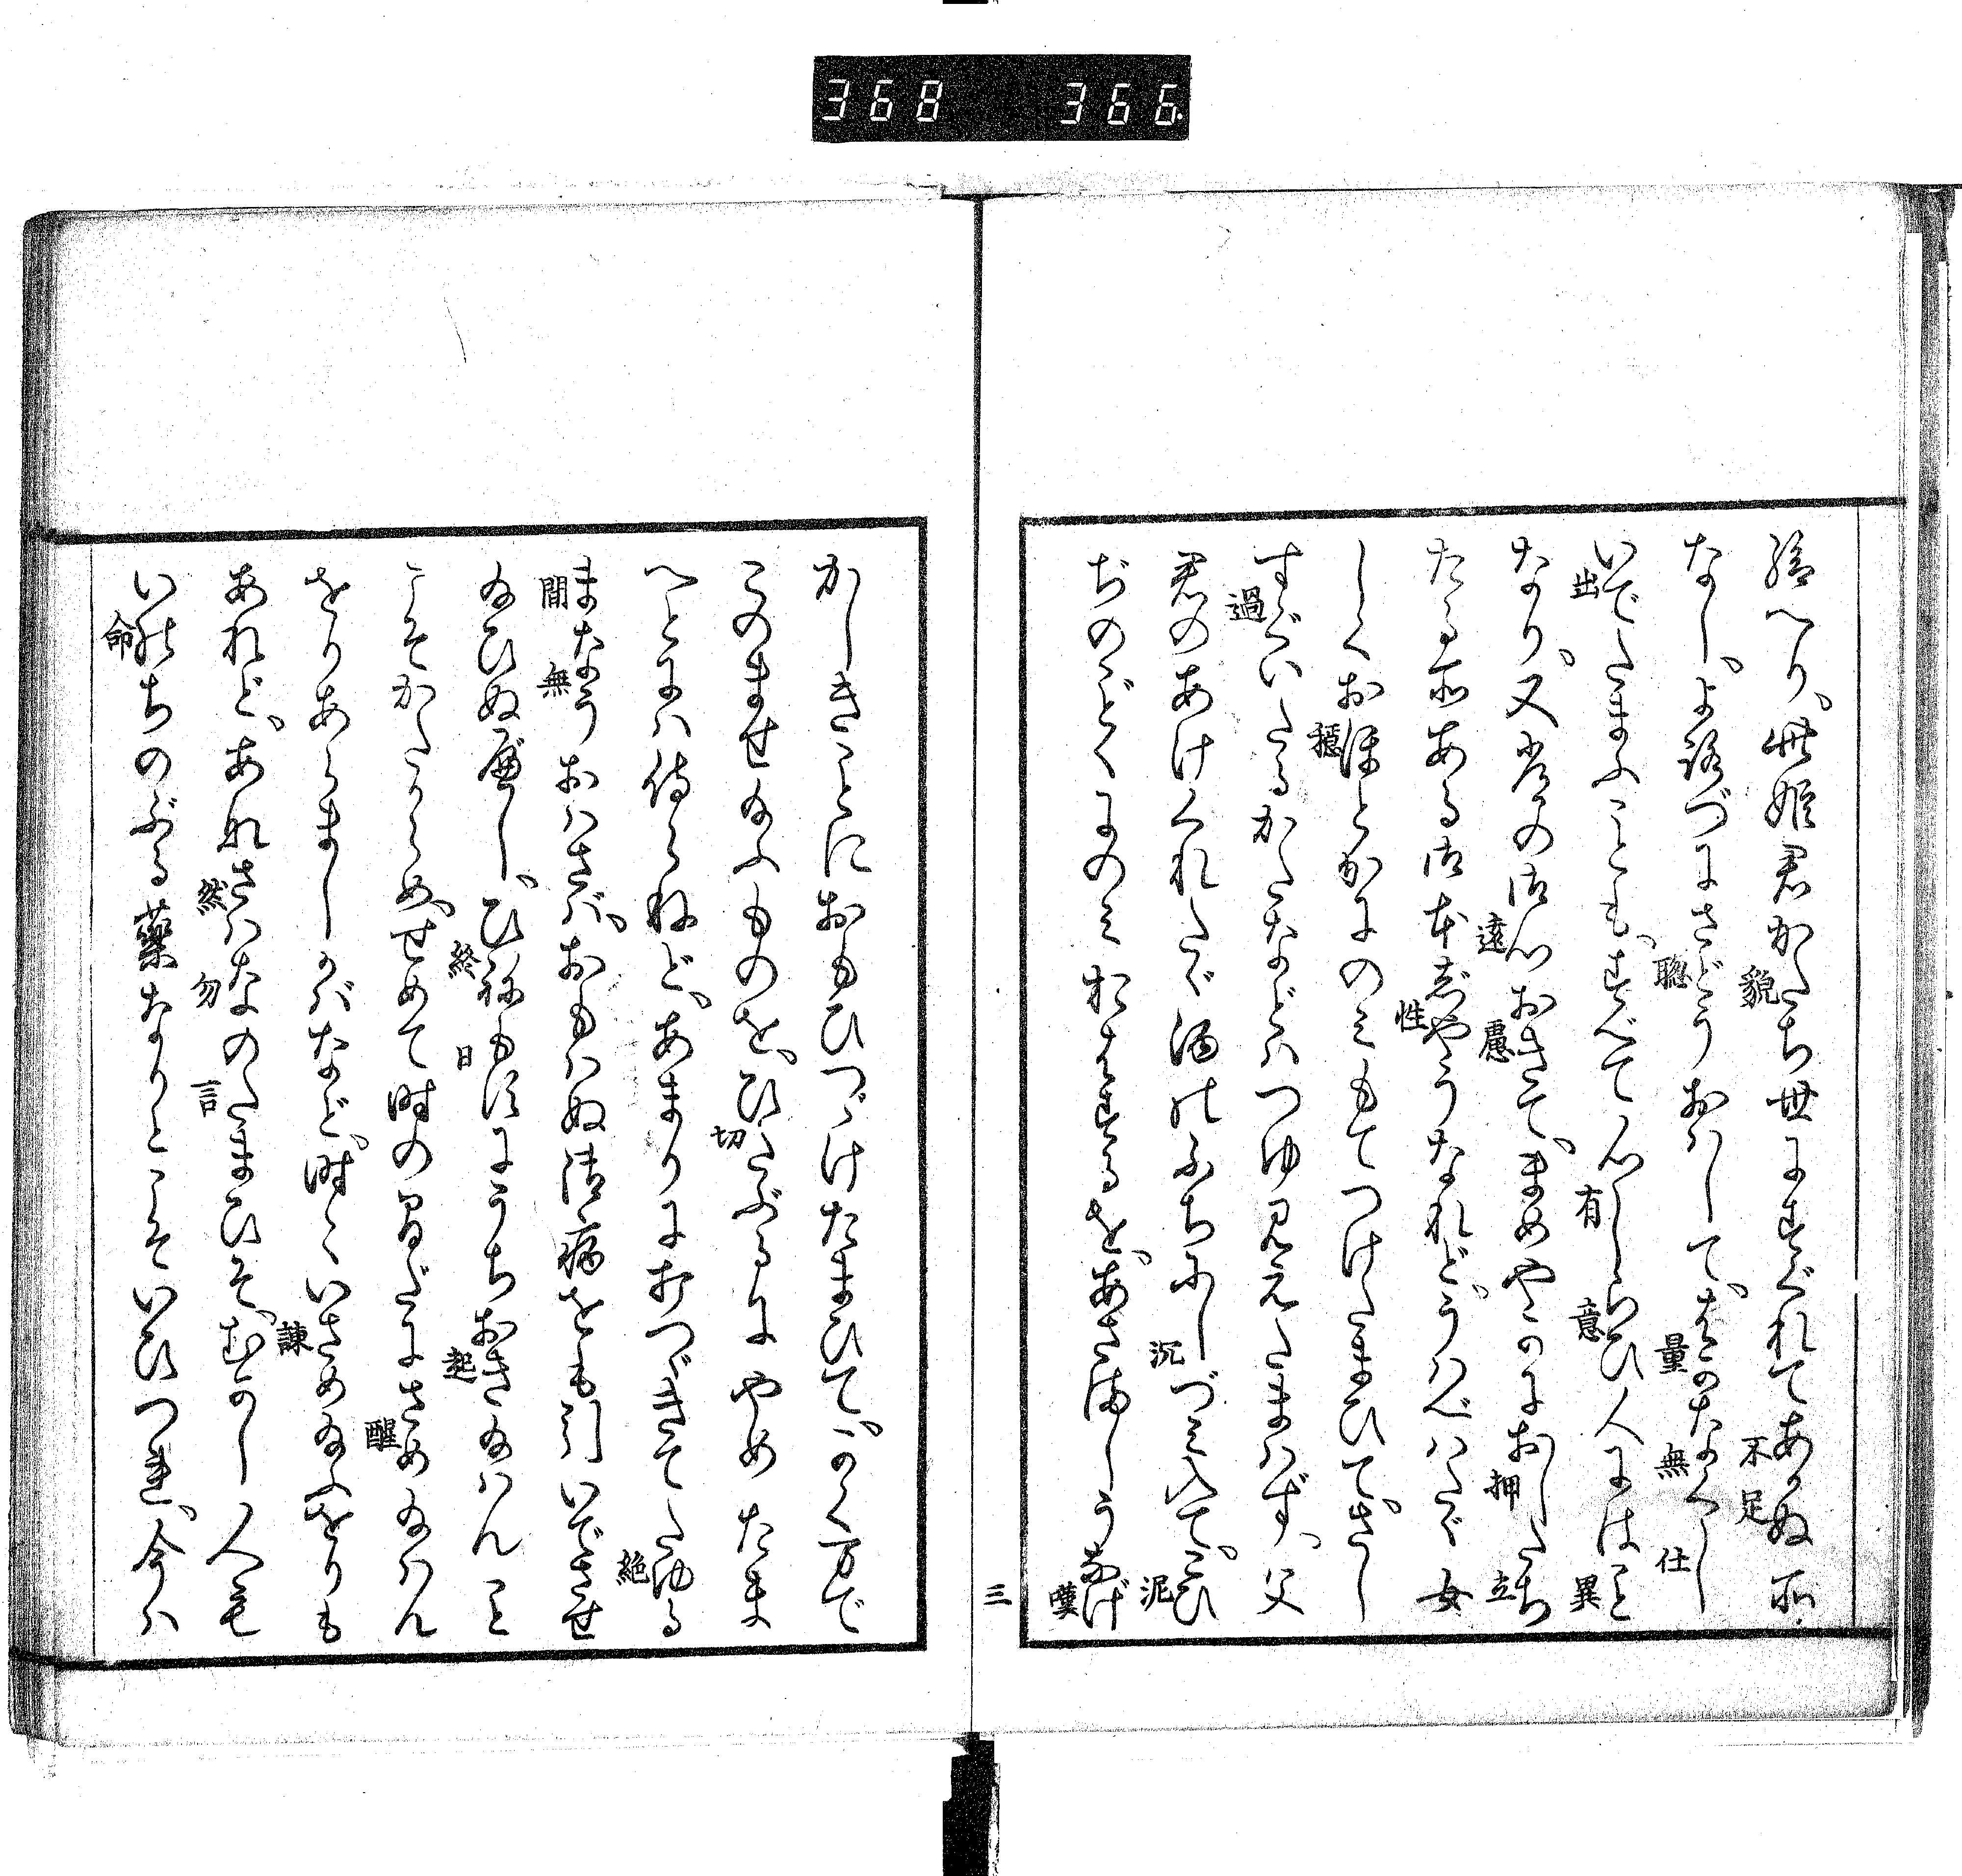 368 366
給へり、此姫君かたち世にすぐれてあかぬ所
なし、よろづにさどうおはして、はかなくし
いでたまふことも、すべて心しらひ人にはこと
なり、又常の御心おきて、まめやかにおしたち
たる所ある御本じやうなれど、うはべはたゞ女
しくおほとかにのみもてつけたまひて、さし
すぐいたるかたなどはつゆ見えたまはず、父
君のあけくれたゞ酒のふちにしづみ入て、こひ
ぢのごとくにのみおはするを、あさましうなげ
かしきことにおもひつゞけたまひて、かく万で
このませ給ふものを、ひたぶるにやめたま
へとには侍らねど、あまりにおつゞきてたゆる
まなうおはさば、おもはぬ御病をも引いでさせ
給ひぬべし、ひねもすにうちおき給はんこと
こそかたからめ、せめて時の間だにさめ給はん
をりあらましかばなど、時〻いさめ給ふをりも
あれど、あれさはなのたまひそ、むかし人も
いのちのぶる薬なりとこそいひつれ、今は
貌 不足
聡 量 無 仕
出 有 意 異
遠 慮 押 立
性
穏
過
沉 泥
嘆
三
切
絶
間 無
終 日 起
醒
諫
然 勿 言
命